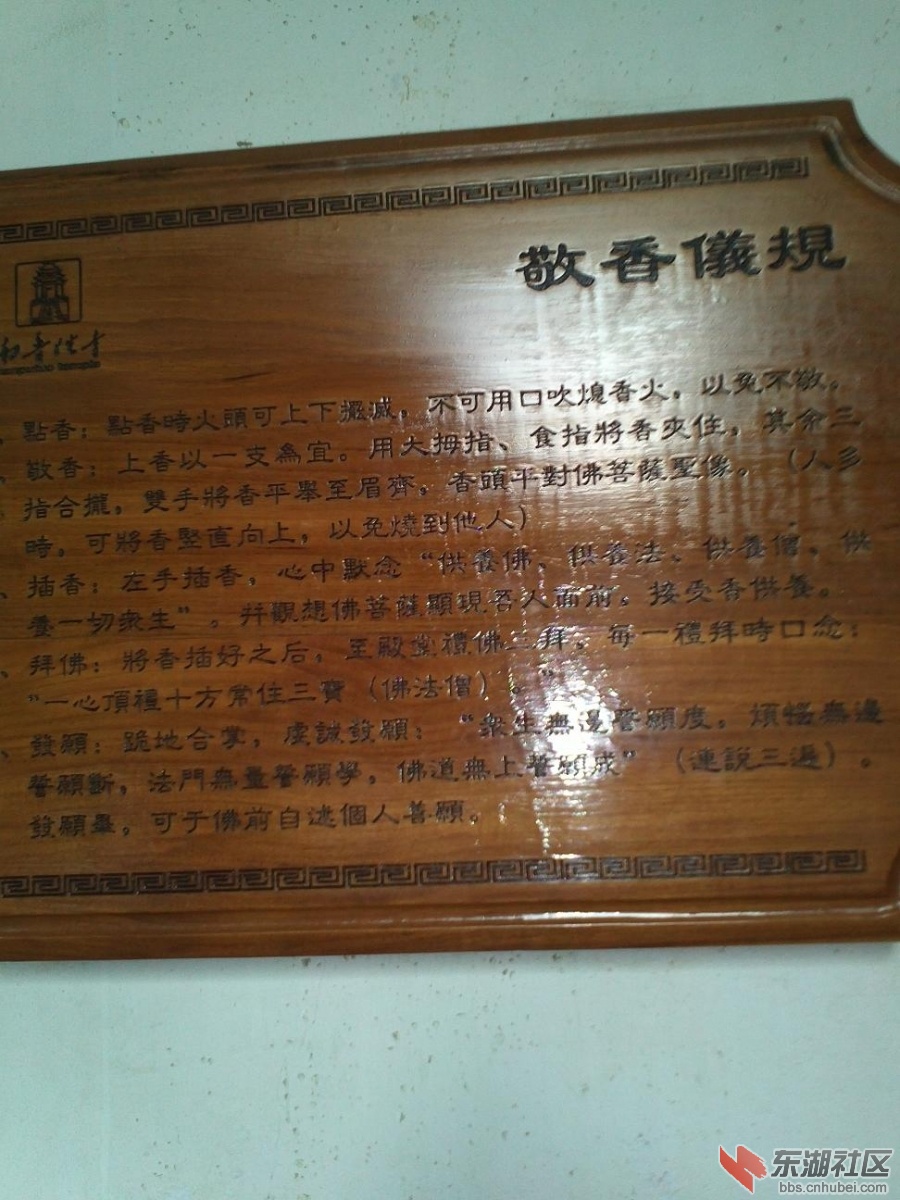 敬香儀規
、點香：點香時火頭可上下擺滅，不可用口吹熄香火，以免不敬。
、敬香：上香以一支為宜。用大拇指、食指將香夾住，其余三
指合攏，雙手將香平舉至眉齊，香頭平對佛菩薩聖像。（人多
時，可將香豎直向上，以免燒到他人）
、插香：左手插香，心中默念“供養佛、供養法、供養僧、供
養一切衆生”。并觀想佛菩薩顯現吾人面前，接受香供養。
、拜佛：將香插好之后，至殿堂禮佛三拜，每一禮拜時口念：
“一心頂禮十方常住三寶（佛法僧）。”
、發願：跪地合掌，虔誠發願：“衆生無邊誓願度，煩惱無邊
誓願斷，法門無量誓願學，佛道無上誓願成”（連說三遍）。
發願畢，可于佛前自述個人善願。
东湖社区
bbs.cnhubei.com